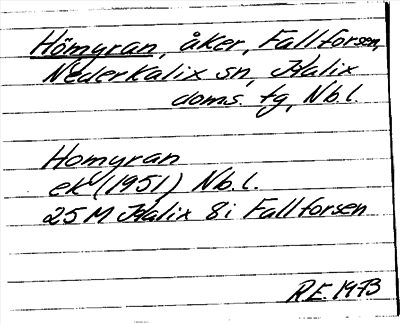 Hömyran, åker, Fallforsen,
Nederkalix sn, Kalix
doms. tg, Nb.l.
Homyran
ek (1951) Nb.l.
25 M Kalix 8i Fallforsen
R.E. 1973